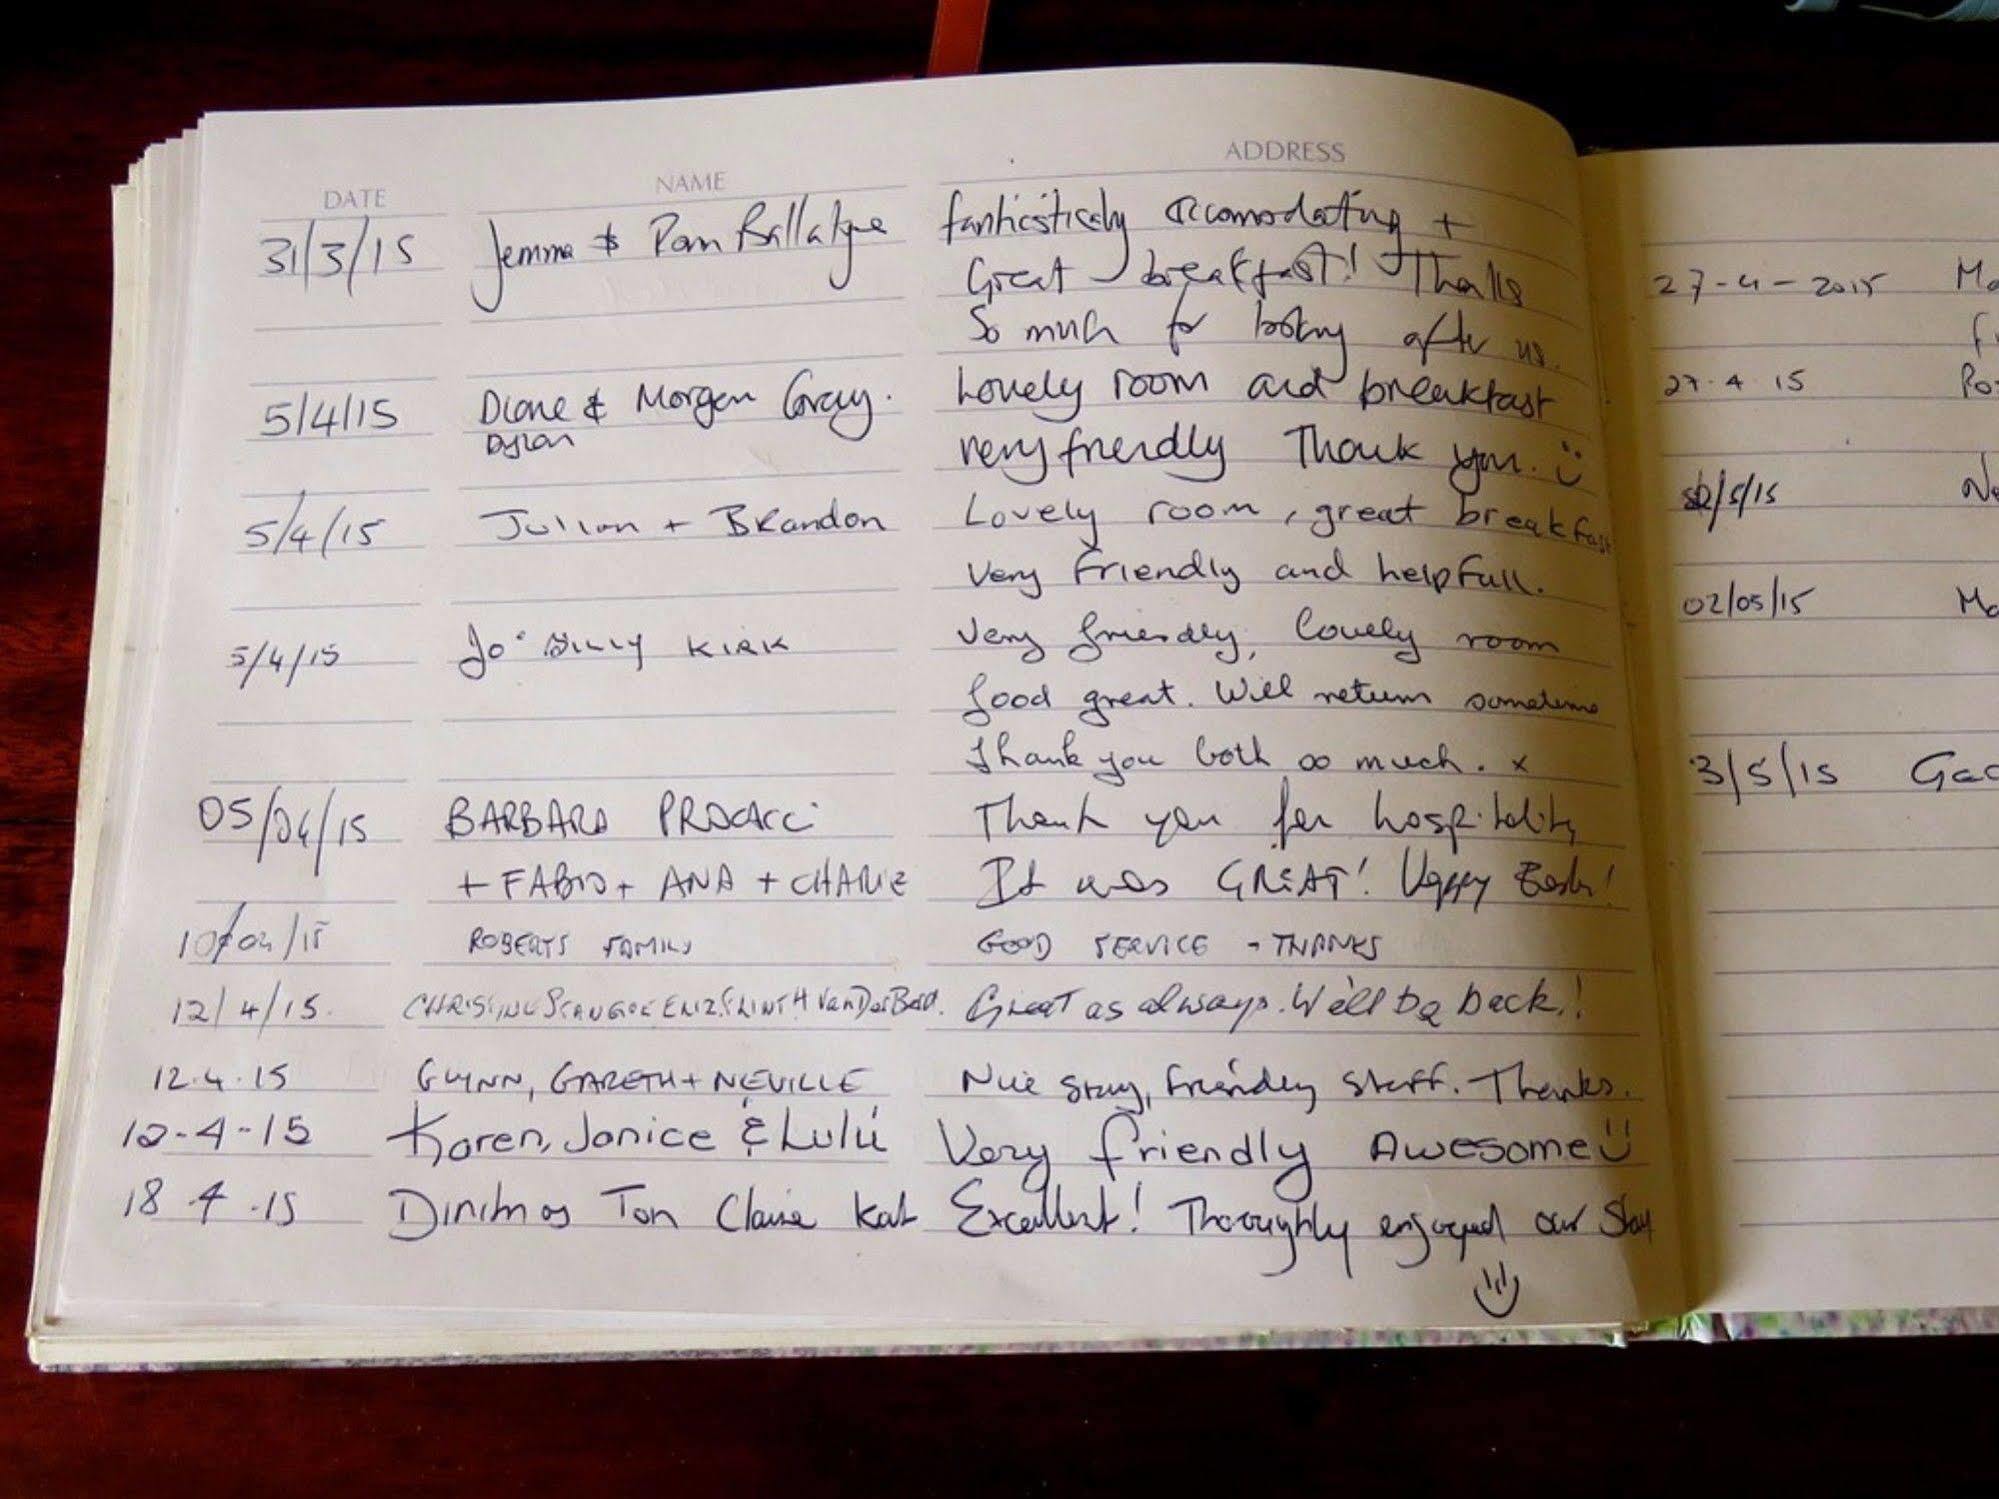 DATE NAME ADDRESS
31/3/15 Jemma & Pam fantastically accomodating +
Great breakfast! Thanks
So much for looking after us.
5/4/15 Diane & Morgan Gray. Lovely room and breakfast
Dylan very friendly Thank you.
5/4/15 Julian + Brandon Lovely room, great breakfast
very friendly and helpfull.
5/4/15 Jo Billy KIRK Very friendly, lovely room
food great. Will return sometime
Thank you both so much. x
05/04/15 BARBARA PROCACCI Thank you for hospitality
+ FABIO + ANA + CHARLIE It was GREAT! Happy Easter!
10/04/15 ROBERTS FAMILY GOOD SERVICE - THANKS
12/4/15. Great as always. We'll be back.!
12.4.15 GLYNN, GARETH + NEVILLE Nice stay, friendly staff. Thanks.
12-4-15 Karen, Janice & Lulu Very friendly Awesome
18.4.15 Tom Claire Kat Excellent! Thoroughly enjoyed our Stay
27-4-2015
27.4.15
/5/15
02/05/15
3/5/15